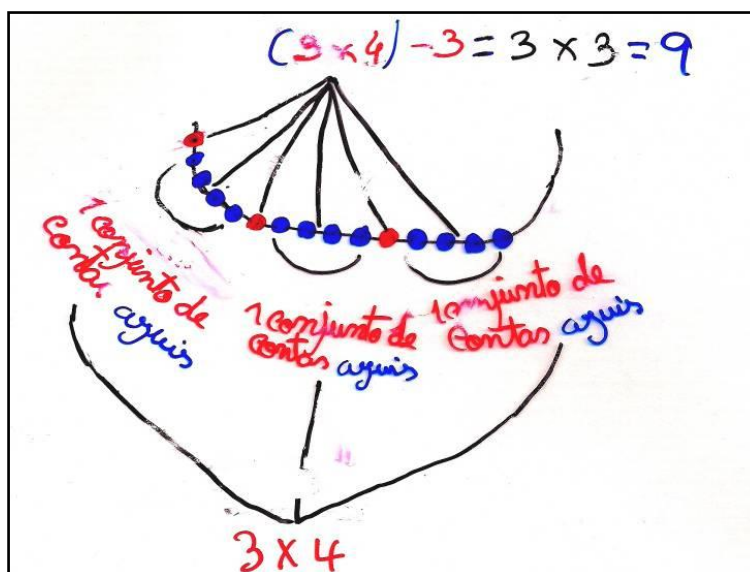 (3 x 4) - 3 = 3 x 3 = 9
1 conjunto de
contas azuis
1 conjunto de
contas azuis
1 conjunto de
contas azuis
3 x 4